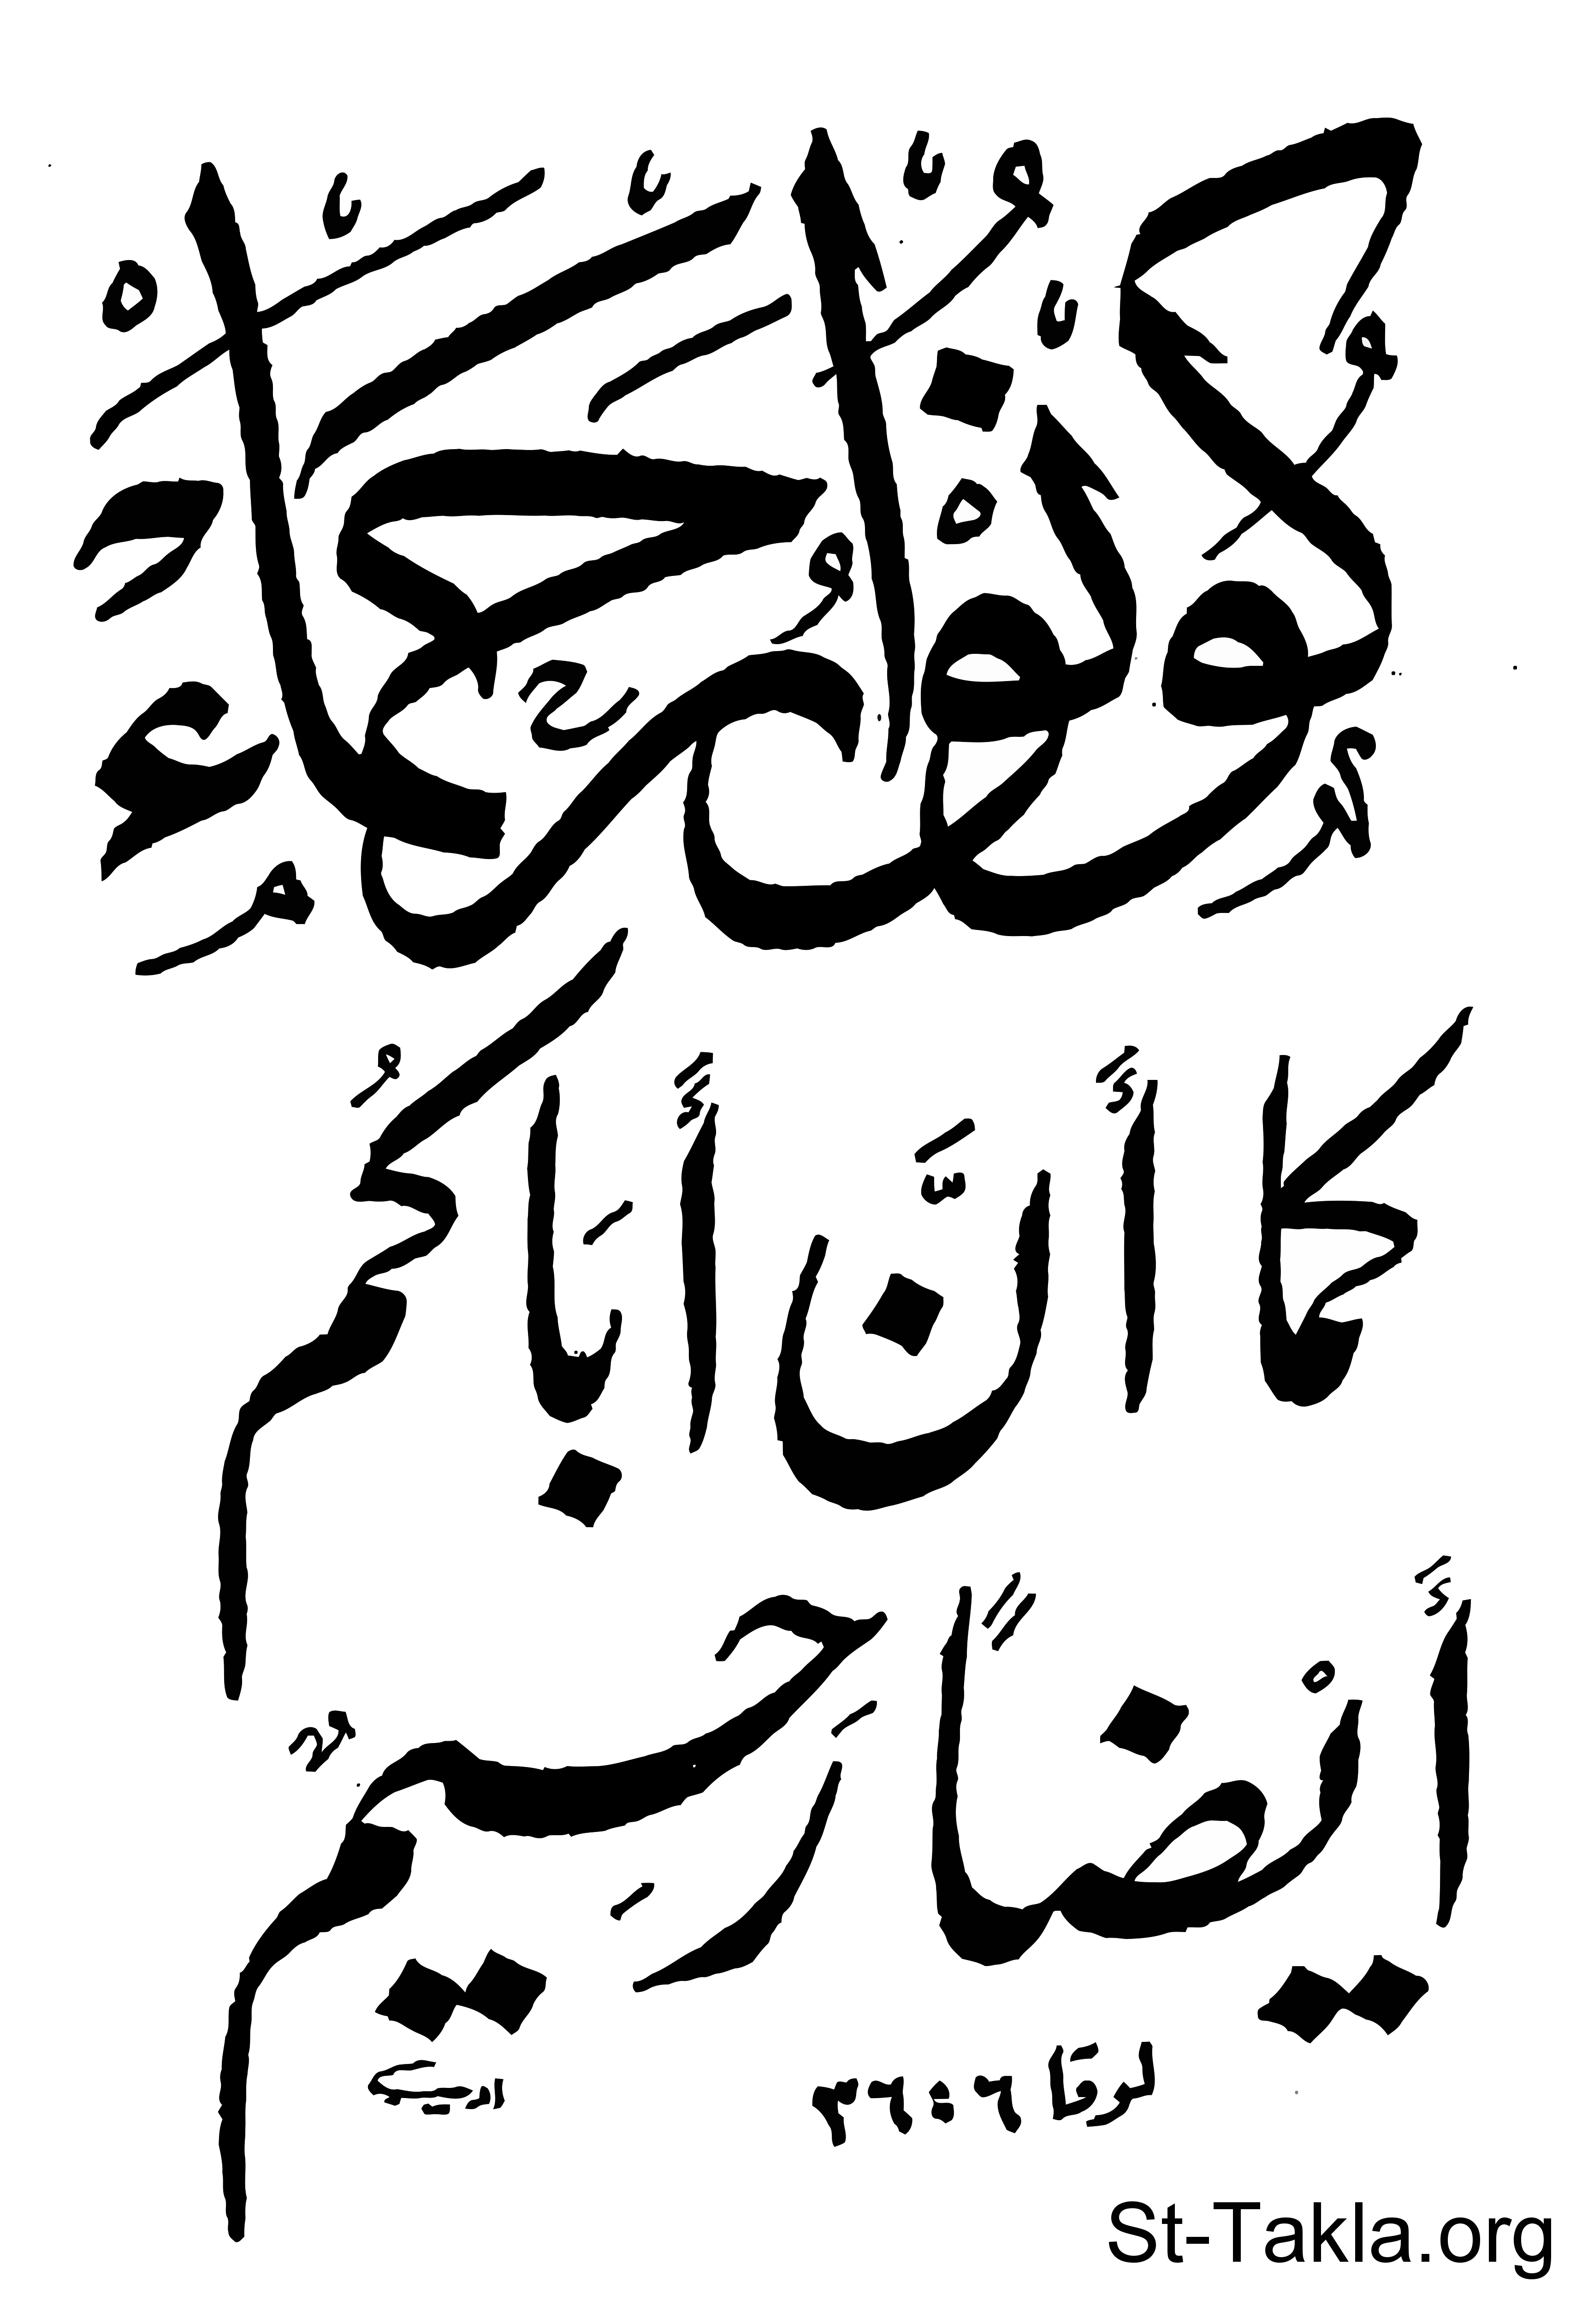 فَكُونُوا رُحَمَاءَ
كَمَا أَنَّ أَبَاكُمْ
أَيْضًا رَحِيمٌ
لوقا ٦ : ٣٦
St-Takla.org